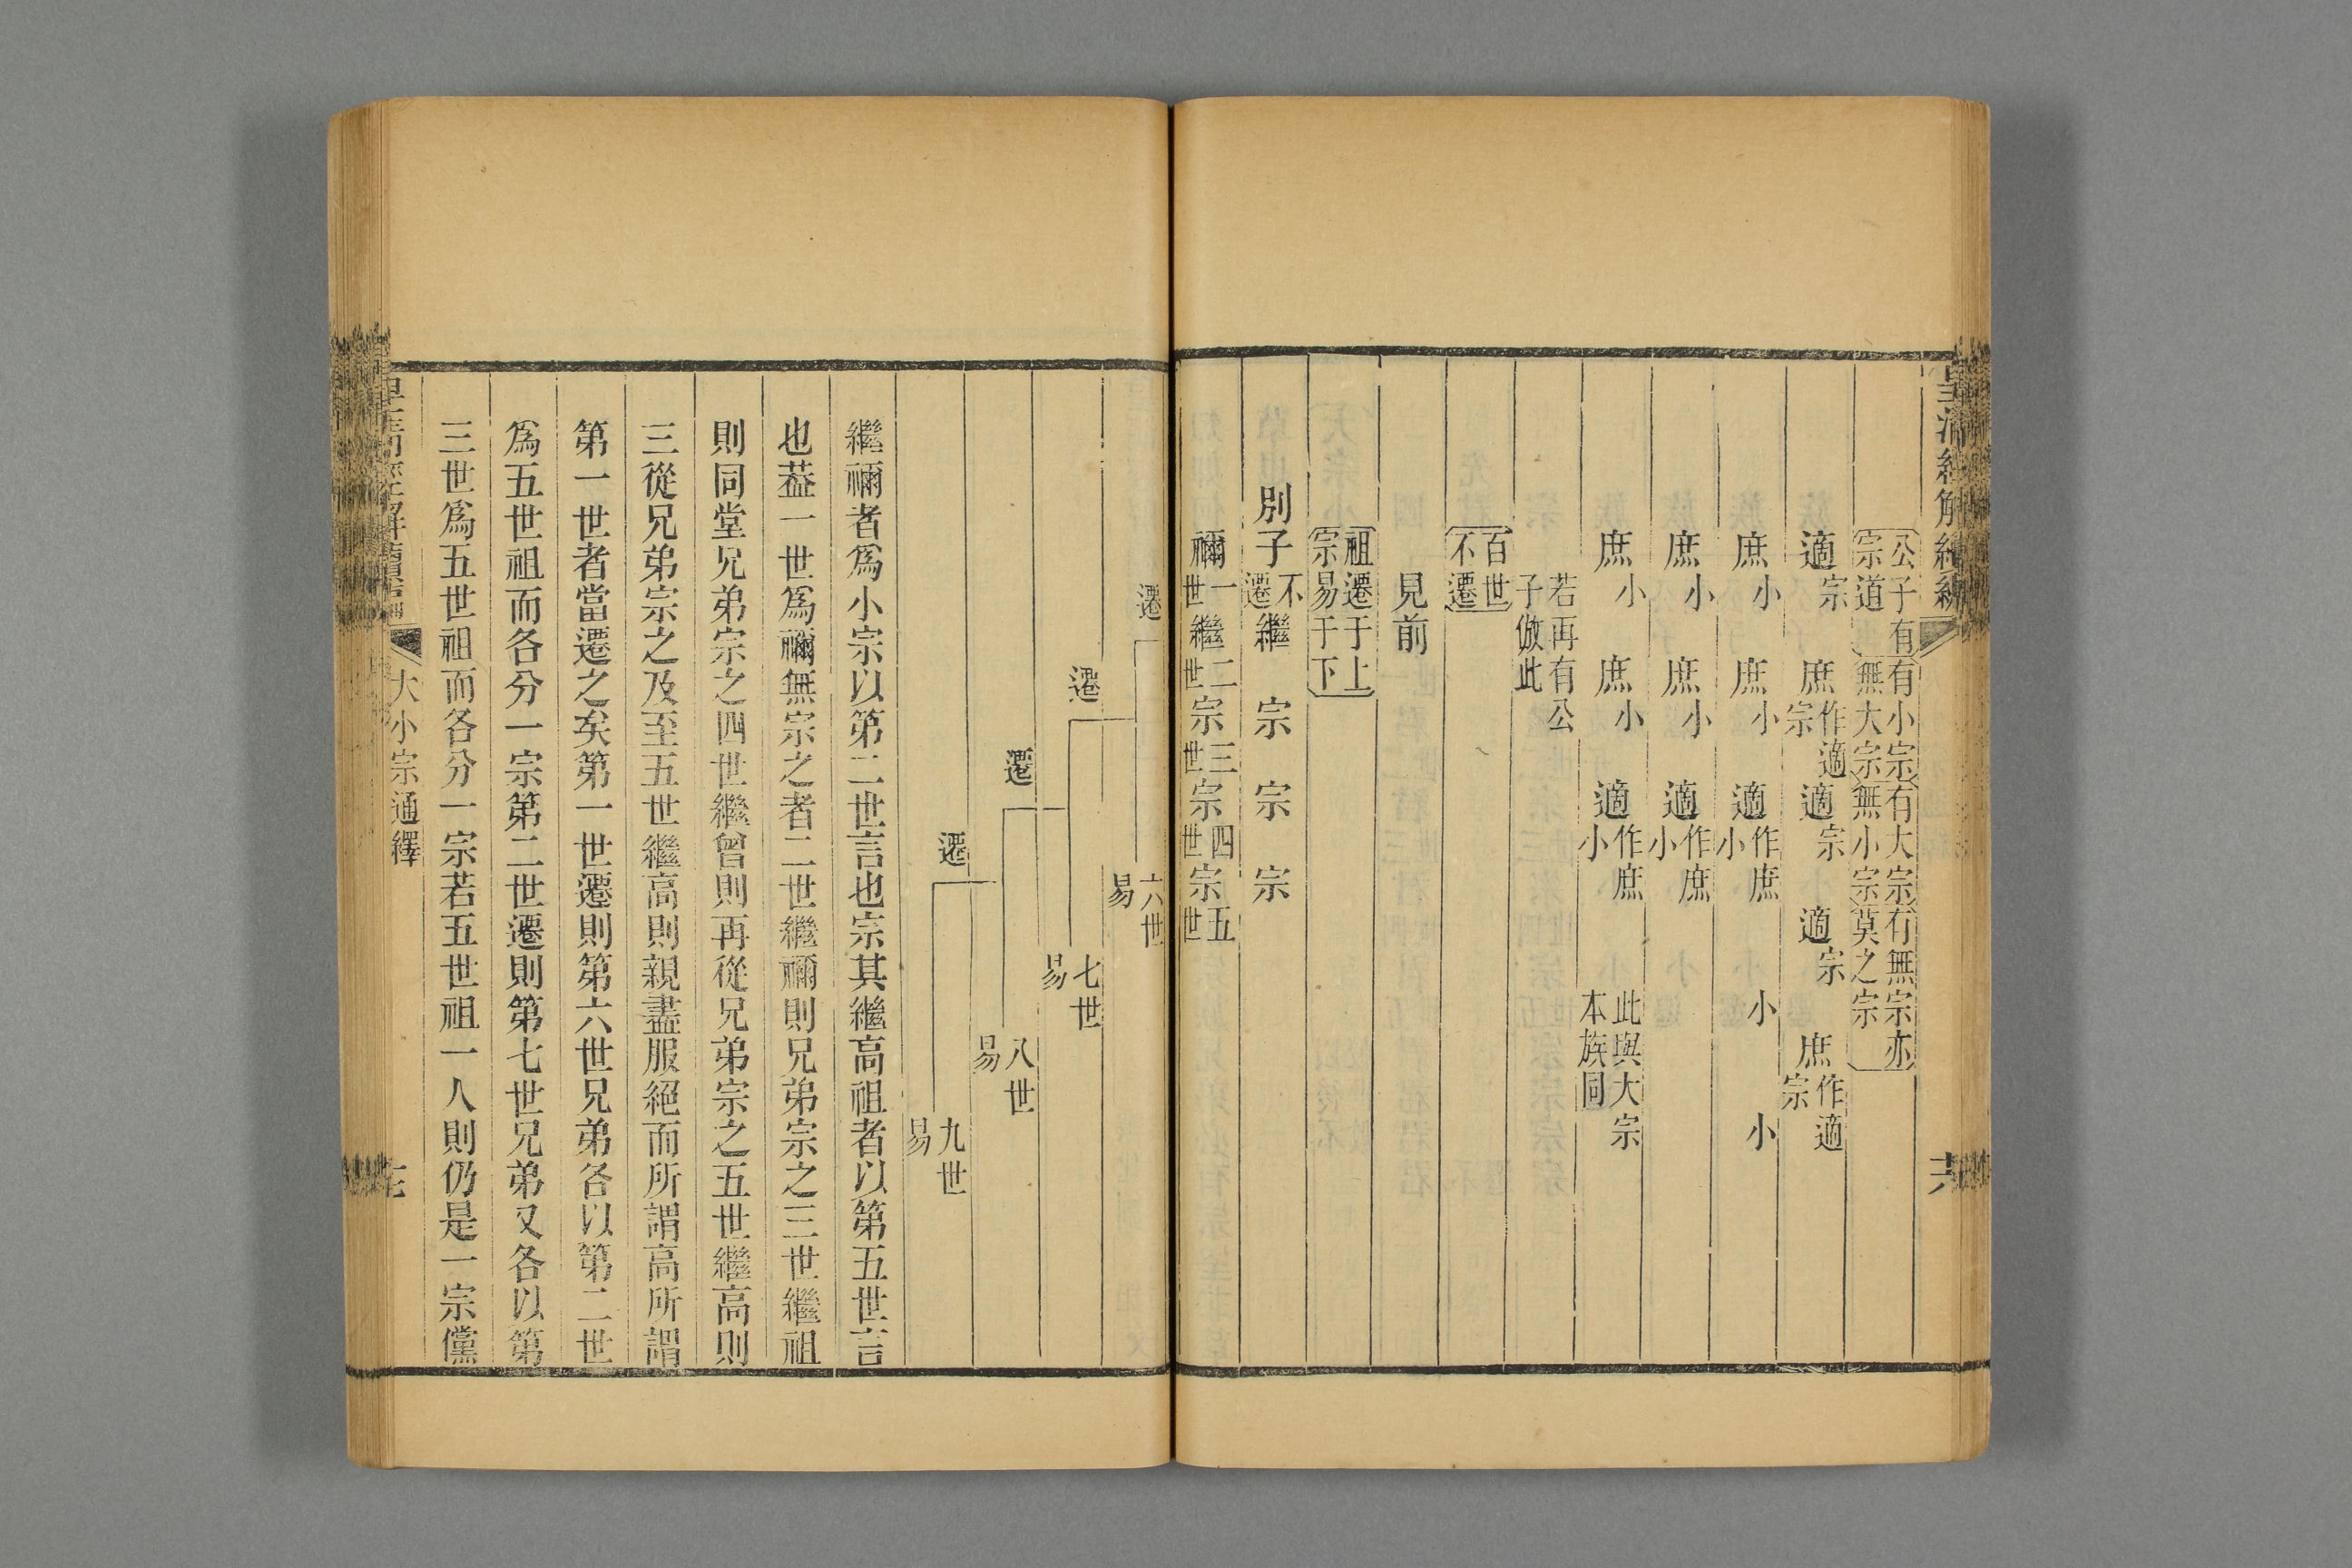 皇清經解續編
六
公子有宗道
有小宗無大宗
有大宗無小宗
有無宗亦莫之宗
適宗 庶作適宗 適宗 適宗 庶作適宗
庶小 庶小 適作庶小 小 小
庶小 庶小 適作庶小
庶小 庶小 適作庶小 此與大宗本族同
若再有公子倣此
百世不遷
見前
祖遷于上宗易于下
別子不遷 繼 宗 宗 宗
禰一世 繼二世 宗三世 宗四世 宗五世
遷 六世易
遷 七世易
遷 八世易
遷 九世易
繼禰者爲小宗以第二世言也宗其繼高祖者以第五世言
也葢一世爲禰無宗之者二世繼禰則兄弟宗之三世繼祖
則同堂兄弟宗之四世繼曾則再從兄弟宗之五世繼高則
三從兄弟宗之及至五世繼高則親盡服絕而所謂高所謂
第一世者當遷之矣第一世遷則第六世兄弟各以第二世
爲五世祖而各分一宗第二世遷則第七世兄弟又各以第
三世爲五世祖而各分一宗若五世祖一人則仍是一宗儻
皇清經解續編 大小宗通繹